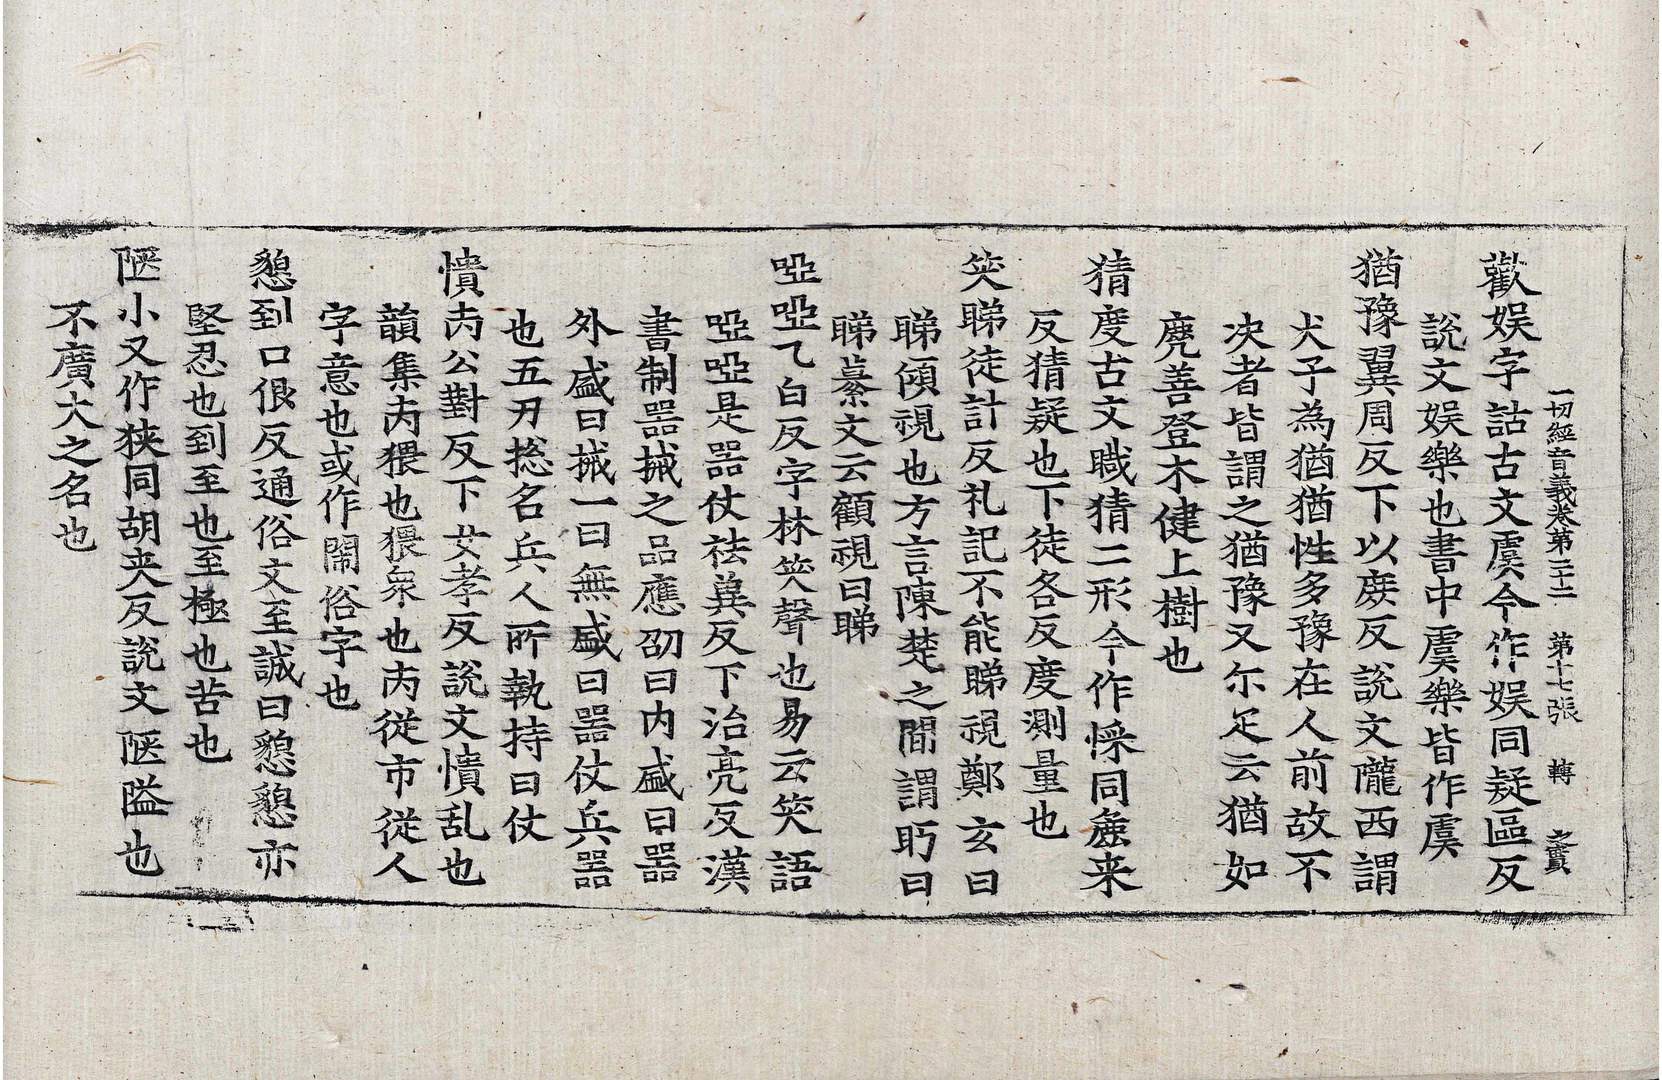 一切經音義卷第二十二 第十七張 轉
歡娱字詁古文虞今作娱同疑區反
說文娱樂也書中虞樂皆作虞
猶豫翼周反下以庶反說文隴西謂
犬子為猶猶性多豫在人前故不
决者皆謂之猶豫又尒疋云猶如
麂善登木健上樹也
猜度古文䐶猜二形今作悇同麁来
反猜疑也下徒各反度測量也
笑睇徒計反礼記不能睇視鄭玄曰
睇傾視也方言陳楚之間謂眄曰
睇纂文云顧視曰睇
啞啞乙白反字林笑聲也易云笑語
啞啞是器仗祛兾反下治亮反漢
書制器械之品應劭曰内盛曰器
外盛曰械一曰無盛曰器仗兵器
也五刃捴名兵人所執持曰仗
憒丙公對反下女孝反說文憒乱也
韻集丙猥也猥衆也丙從市從人
字意也或作閙俗字也
懇到口佷反通俗文至誠曰懇懇亦
堅忍也到至也至極也苦也
陿小又作狭同胡夾反說文陿隘也
不廣大之名也